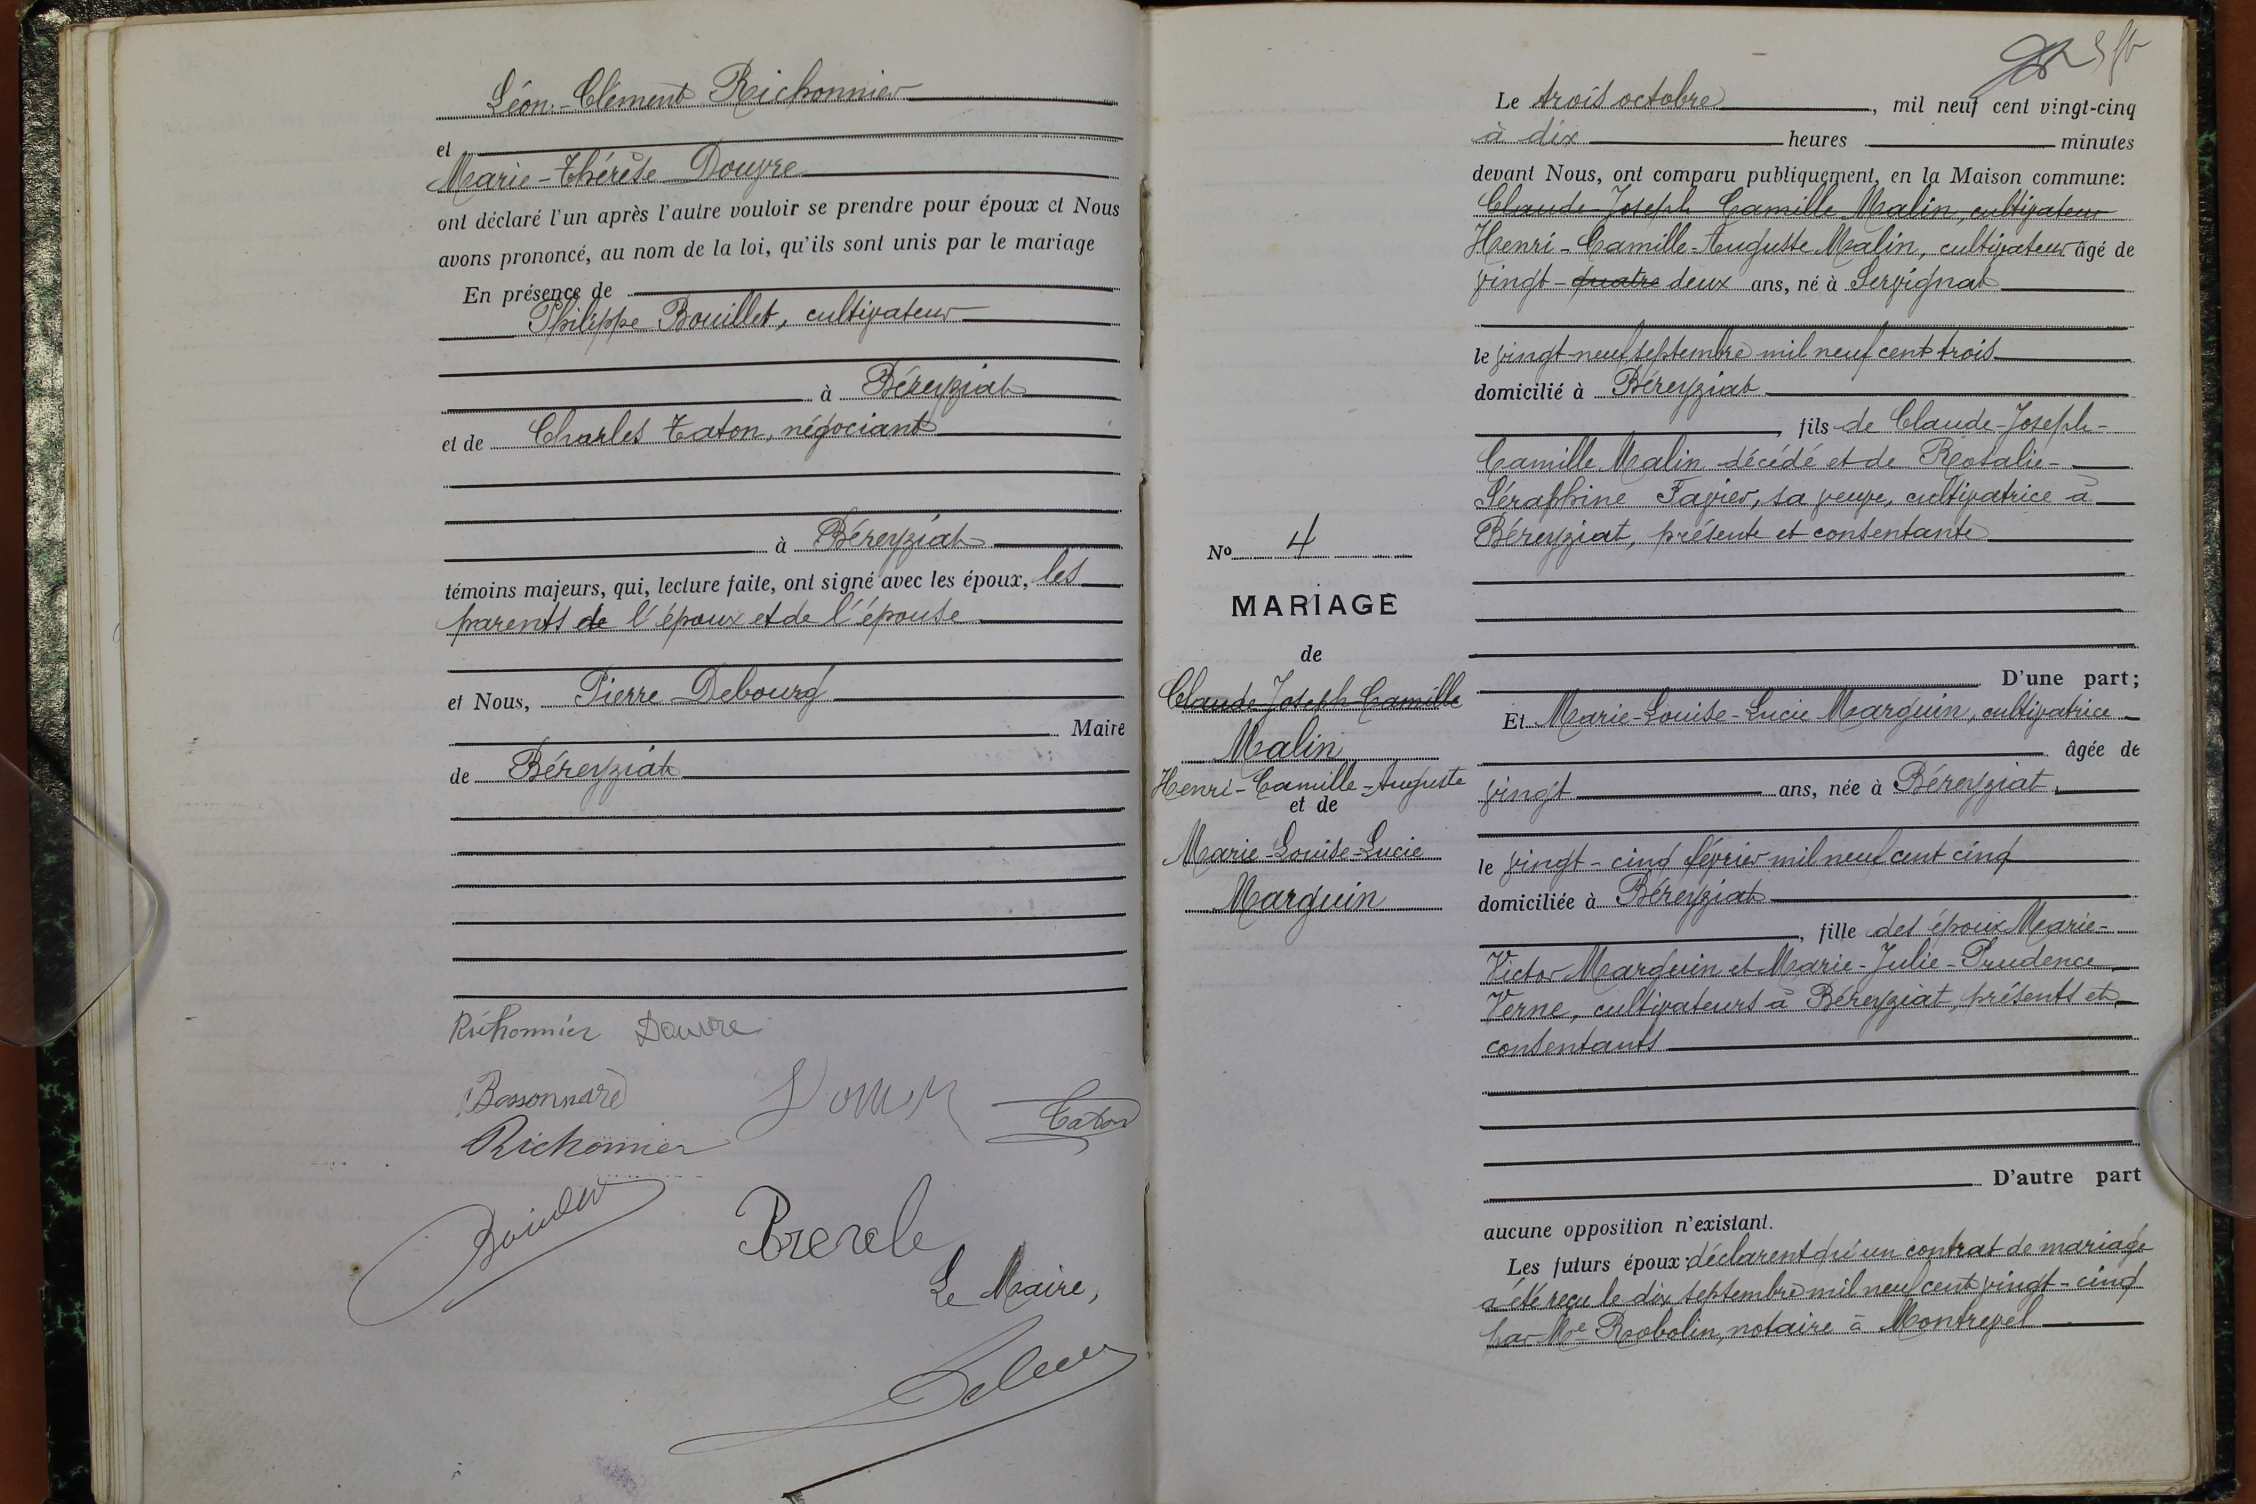 Léon-Clément Richonnier
et
Marie-Thérèse Douvre
ont déclaré l'un après l'autre vouloir se prendre pour époux et Nous
avons prononcé, au nom de la loi, qu'ils sont unis par le mariage
En présence de
Philippe Bouillet, cultivateur
à Béreyziat
et de Charles Caton, négociant
à Béreyziat
témoins majeurs, qui, lecture faite, ont signé avec les époux, les
parents de l'époux et de l'épouse
et Nous, Pierre Debourg
Maire
de Béreyziat
Richonnier Douvre
Bossonnard
Caton
Richonnier
Brevele
Le Maire,
Le trois octobre, mil neuf cent vingt-cinq
à dix heures minutes
devant Nous, ont comparu publiquement, en la Maison commune:
Claude-Joseph Camille Malin, cultivateur
Henri-Camille-Auguste Malin, cultivateur âgé de
vingt-quatre deux ans, né à Servignat
le vingt-neuf septembre mil neuf cent trois
domicilié à Béreyziat
, fils de Claude-Joseph-
Camille Malin décédé et de Rosalie-
Séraphine Favier, sa veuve, cultivatrice à
Béreyziat, présente et consentante
No 4
MARIAGE
de
Claude-Joseph-Camille
Malin
Henri-Camille-Auguste
et de
Marie-Louise-Lucie
Marguin
D'une part;
Et Marie-Louise-Lucie Marguin, cultivatrice
âgée de
vingt ans, née à Béreyziat,
le vingt-cinq février mil neuf cent cinq
domiciliée à Béreyziat
, fille des époux Marie-
Victor Marguin et Marie-Julie-Prudence
Verne, cultivateurs à Béreyziat, présents et
consentants
D'autre part
aucune opposition n'existant.
Les futurs époux déclarent qu'un contrat de mariage
a été reçu le dix septembre mil neuf cent vingt-cinq
par Me Robolin, notaire à Montrevel